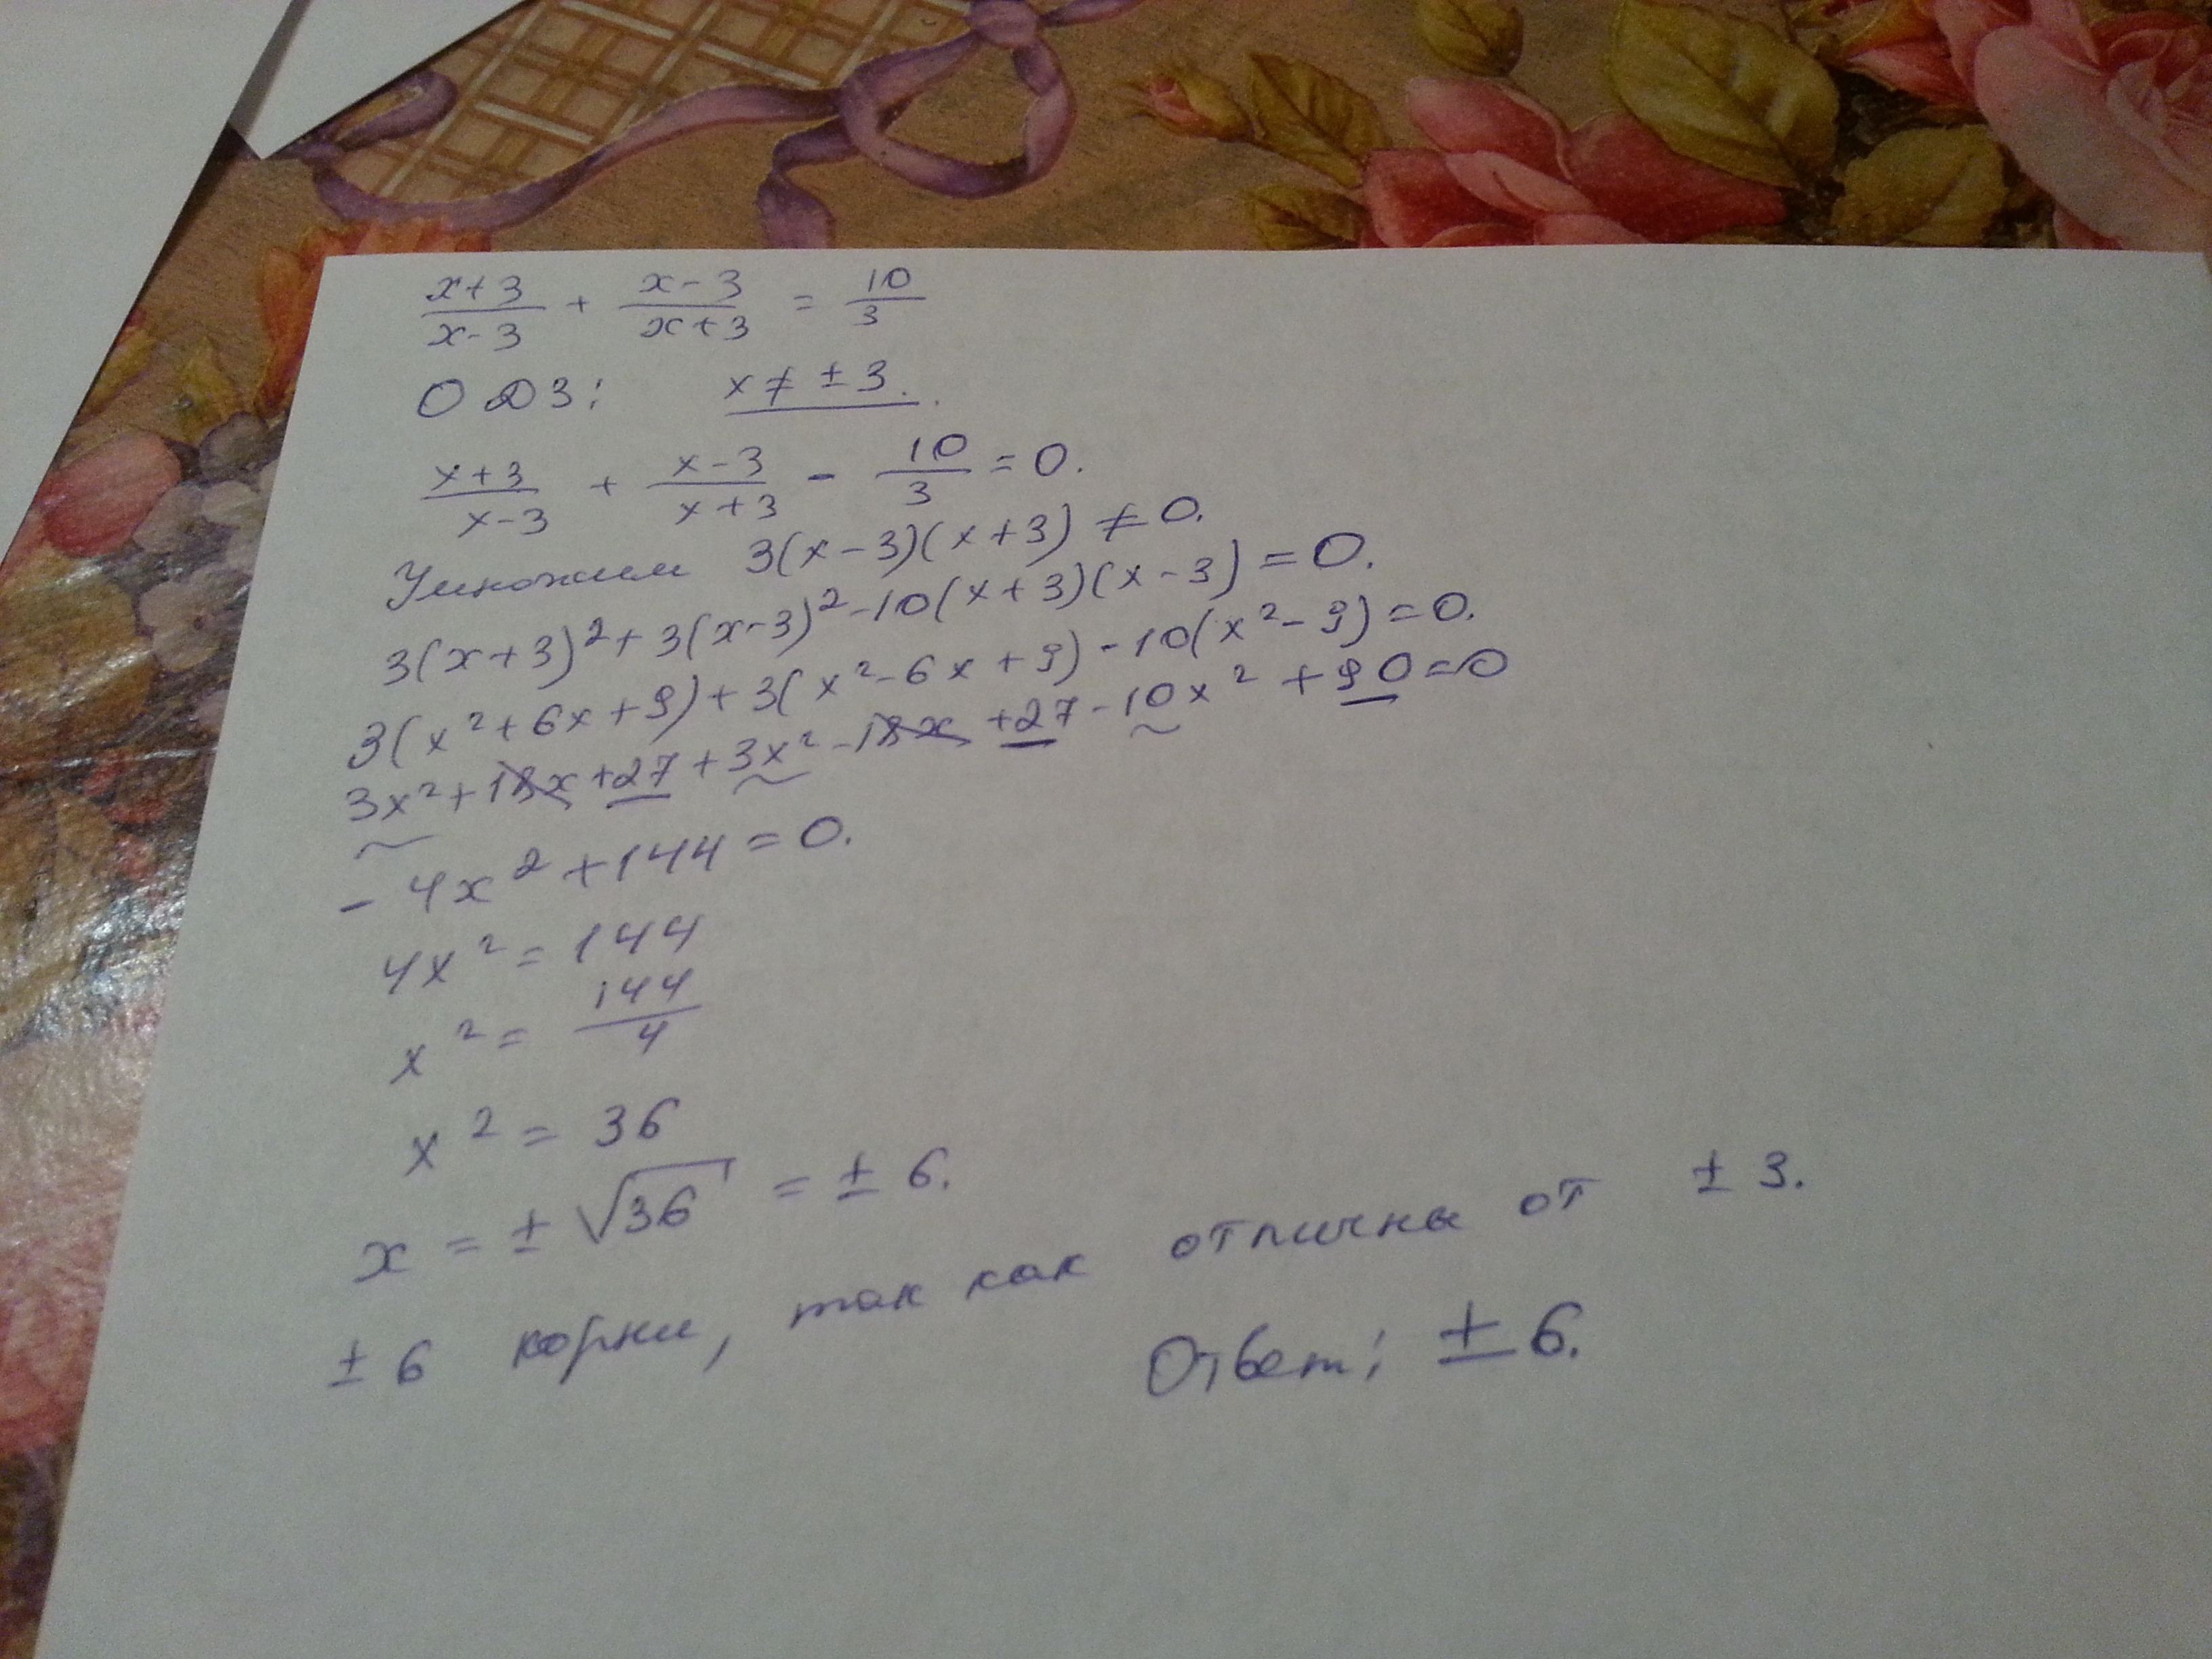 x+3/x-3 + x-3/x+3 = 10/3
ОДЗ: x ≠ ±3.
x+3/x-3 + x-3/x+3 - 10/3 = 0.
Умножим 3(x-3)(x+3) ≠ 0.
3(x+3)²+3(x-3)²-10(x+3)(x-3) = 0.
3(x²+6x+9)+3(x²-6x+9)-10(x²-9)=0.
3x²+18x+27+3x²-18x+27-10x²+90=0
-4x²+144=0.
4x²=144
x²=144/4
x²=36
x=±√36=±6.
±6 корни, так как отличны от ±3.
Ответ: ±6.